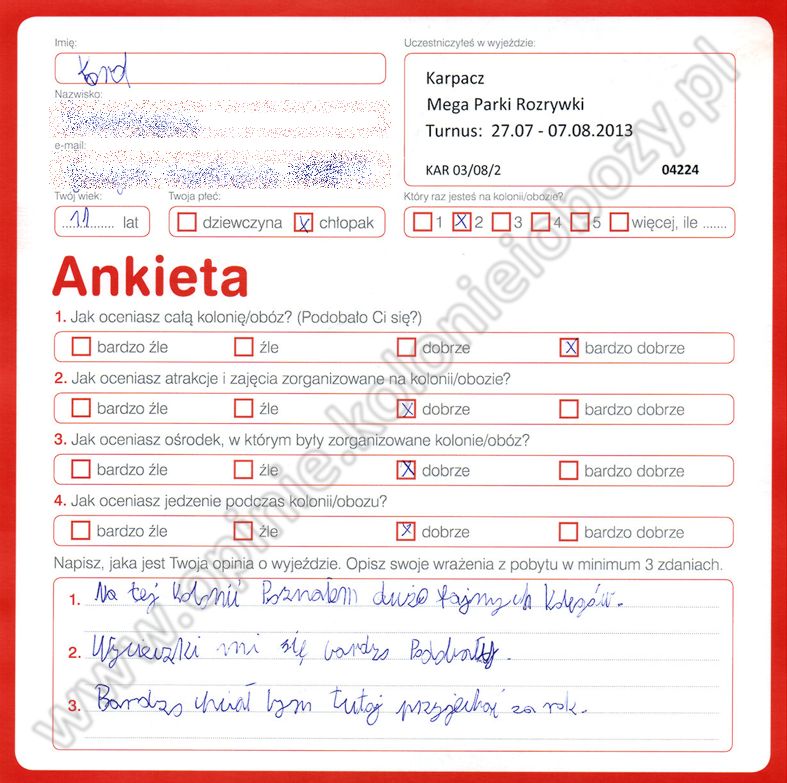 Imię:
Uczestniczyłeś w wyjeździe:
Karol
Karpacz
Mega Parki Rozrywki
Turnus: 27.07 - 07.08.2013
KAR 03/08/2 04224
Nazwisko:
e-mail:
Twój wiek: Twoja płeć: Który raz jesteś na kolonii/obozie?
11 lat dziewczyna x chłopak 1 x 2 3 4 5 więcej, ile .......
Ankieta
1. Jak oceniasz całą kolonię/obóz? (Podobało Ci się?)
bardzo źle źle dobrze x bardzo dobrze
2. Jak oceniasz atrakcje i zajęcia zorganizowane na kolonii/obozie?
bardzo źle źle x dobrze bardzo dobrze
3. Jak oceniasz ośrodek, w którym były zorganizowane kolonie/obóz?
bardzo źle źle x dobrze bardzo dobrze
4. Jak oceniasz jedzenie podczas kolonii/obozu?
bardzo źle źle x dobrze bardzo dobrze
Napisz, jaka jest Twoja opinia o wyjeździe. Opisz swoje wrażenia z pobytu w minimum 3 zdaniach.
1. Na tej kolonii Poznałem dużo fajnych kolegów.
2. Wycieczki mi się bardzo Podobały.
3. Bardzo chciał bym tutaj przyjechać za rok.
www.opinie.kolonieiobozy.pl